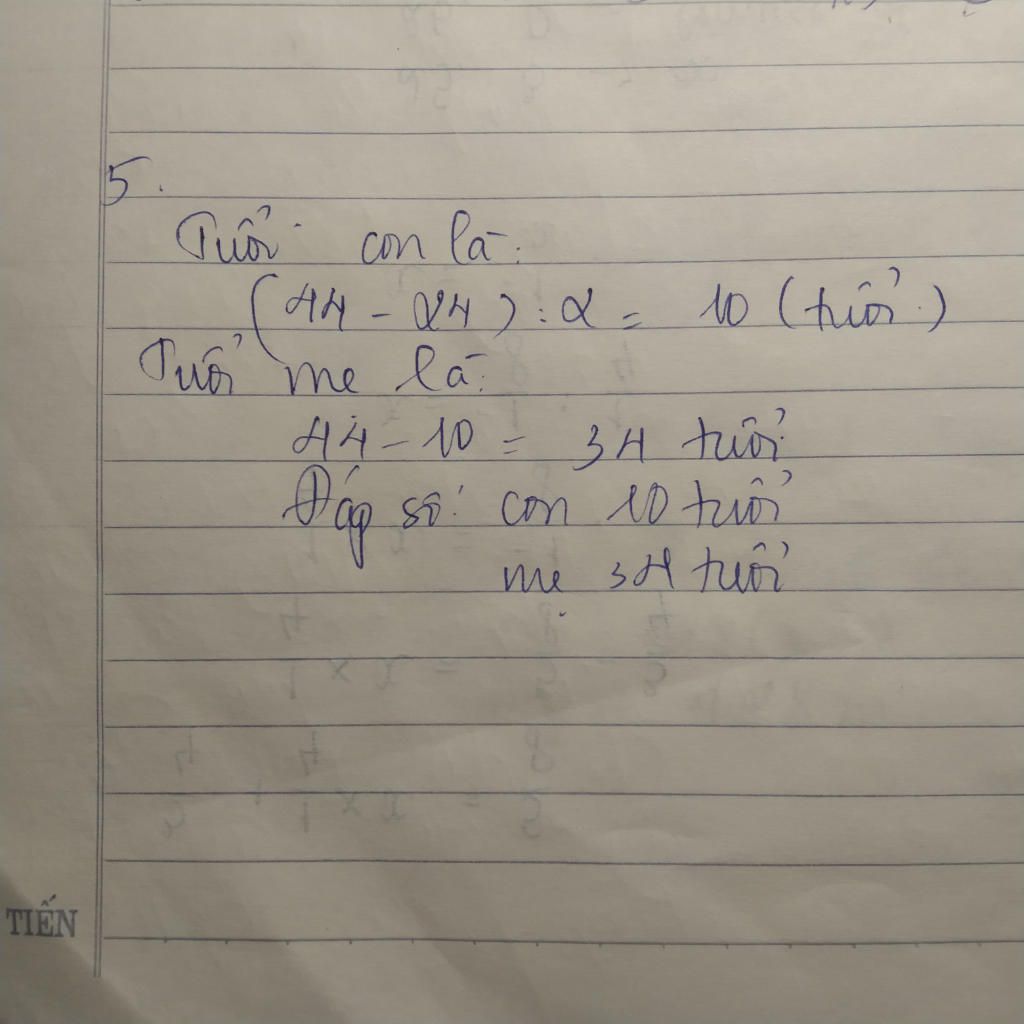 5.
Tuổi con là:
(44 - 24) : 2 = 10 (tuổi)
Tuổi mẹ là:
44 - 10 = 34 tuổi
Đáp số: con 10 tuổi
mẹ 34 tuổi
TIẾN